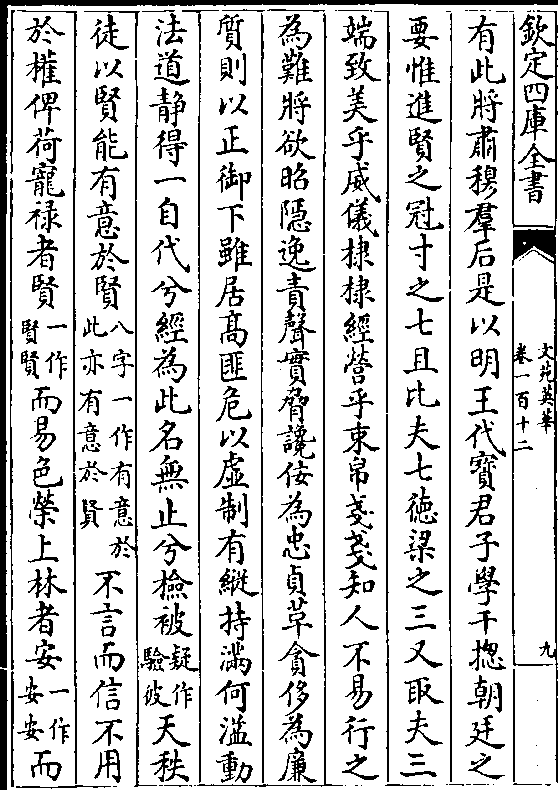 欽定四庫全書
文苑英華
卷一百十二
九
有此將肅穆羣后是以明王代寳君子學干揔朝廷之
要惟進賢之冠寸之七且比夫七徳梁之三又取夫三
端致美乎威儀棣棣經營乎束帛戔戔知人不易行之
為難將欲昭隠逸責聲實脅讒佞為忠貞草貪侈為廉
質則以正御下雖居髙匪危以虛制有縱持滿何溢動
法道静得一自代兮經為此名無止兮檢被驗疑作彼天秩
徒以賢能有意於賢八字一作有意於此亦有意於賢不言而信不用
於權俾荷寵禄者賢一作賢賢而易色榮上林者安一作安安而